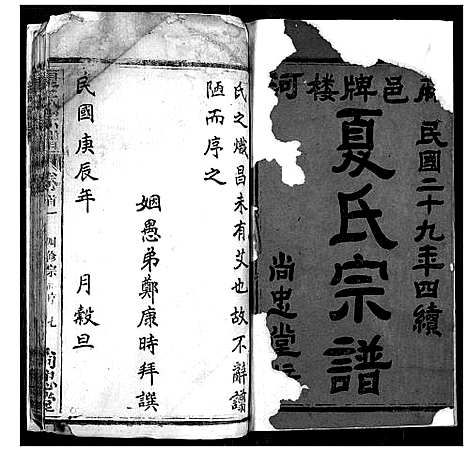 邑牌樓河
民國二十九年四續
夏氏宗譜
尚忠堂
氏之熾昌未有艾也故不辭譾
陋而序之
姻愚弟鄭康時拜譔
民國庚辰年 月穀旦
卷首一
尚忠堂